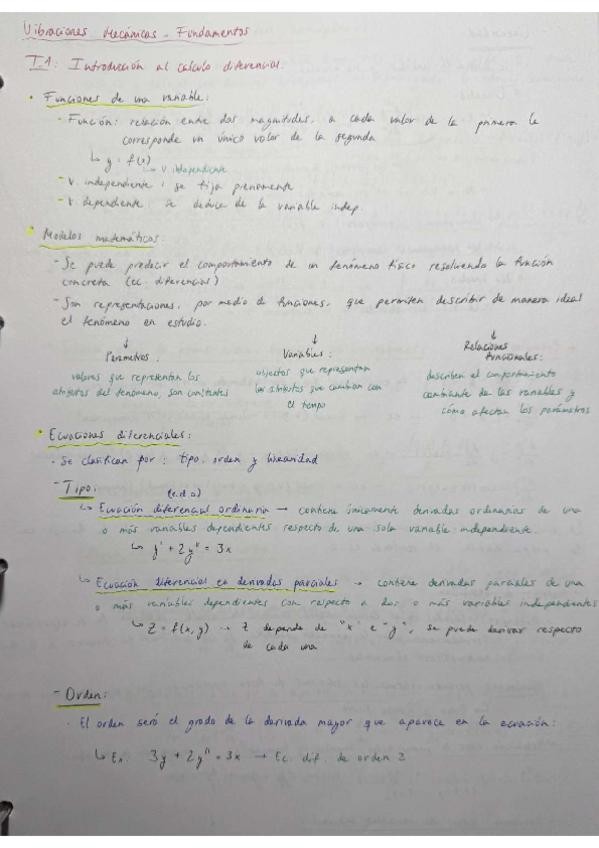 Vibraciones Mecánicas - Fundamentos
T.1: Introducción al calculo diferencial.
• Funciones de una variable:
- Función: relación entre dos magnitudes, a cada valor de la primera le
corresponde un único valor de la segunda
↳ y = f(x)
↳ V. independiente
- V. independiente: se fija previamente
- V. dependiente: se deduce de la variable indep.
• Modelos matemáticos:
- Se puede predecir el comportamiento de un fenómeno físico resolviendo la función
concreta (ec. diferenciales)
- Son representaciones, por medio de funciones, que permiten describir de manera ideal
el fenómeno en estudio.
↓ ↓ ↓
Parámetros: Variables: Relaciones funcionales:
valores que representan los objetos que representan describen el comportamiento
atributos del fenómeno, son constantes los atributos que cambian con cambiante de las variables y
el tiempo cómo afectan los parámetros
• Ecuaciones diferenciales:
• Se clasifican por: tipo, orden y linearidad
- Tipo:
(e.d.o)
↳ Ecuación diferencial ordinaria → contiene únicamente derivadas ordinarias de una
o más variables dependientes respecto de una sola variable independiente.
↳ y' + 2y'' = 3x
↳ Ecuación diferencial en derivadas parciales → contiene derivadas parciales de una
o más variables dependientes con respecto a dos o más variables independientes
↳ Z = f(x,y) → Z depende de "x" e "y", se puede derivar respecto
de cada una
- Orden:
• El orden será el grado de la derivada mayor que aparece en la ecuación:
↳ Ex: 3y + 2y'' = 3x → Ec. dif. de orden 2